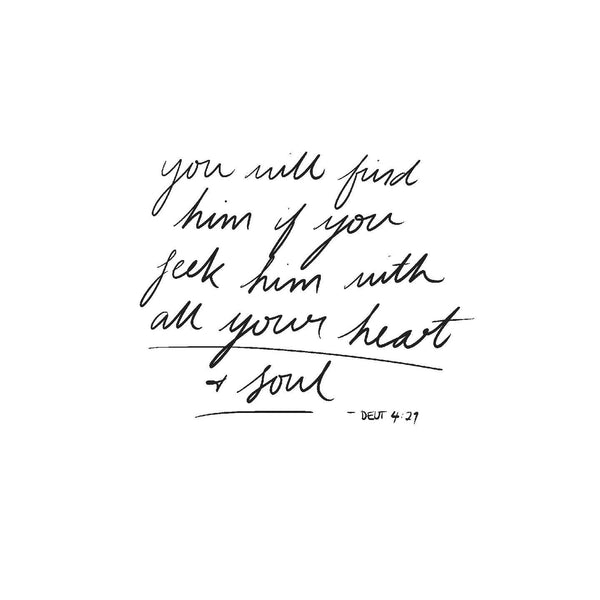 you will find
him if you
seek him with
all your heart
+ soul
- DEUT 4:29